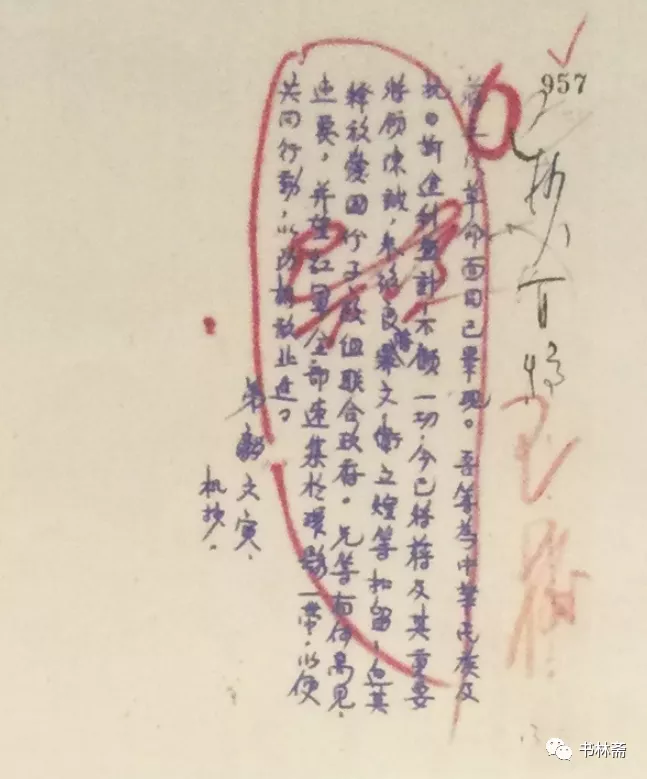 957
革命面目已畢現。吾等為中華民族及
抗日前途利益計,不顧一切,今已将蒋及其重要
将领陳誠,朱绍良,蒋 文,衛立煌等扣留,迫其
釋放愛国份子,改组联合政府。兄等有何高見,
速复,并望红軍全部速集於環縣一带,以便
共同行動,以防 敌北进。
弟毅文寅.
机抄.
书林斋